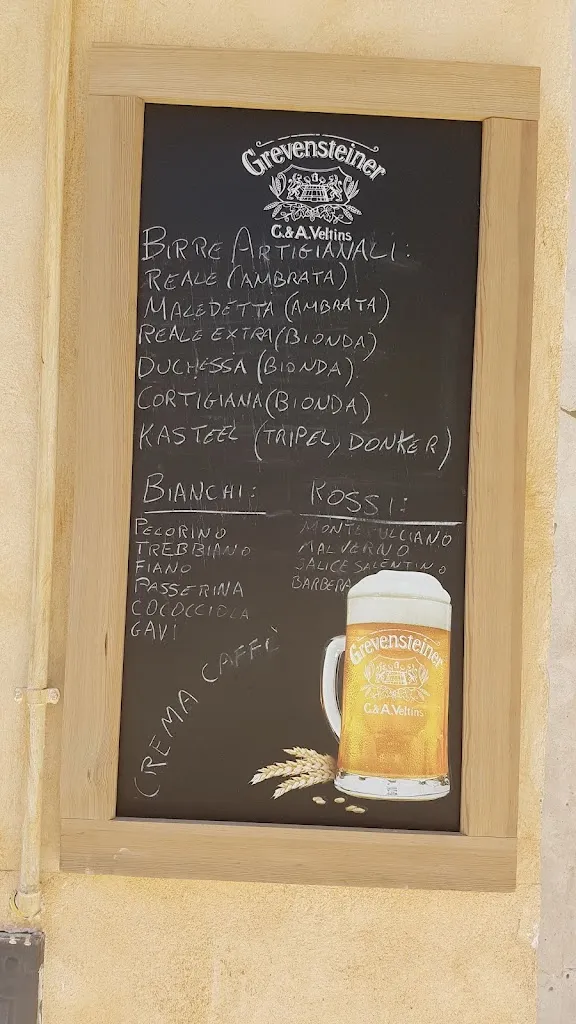 Grevensteiner
C.&A.Veltins
BIRRE ARTIGIANALI:
REALE (AMBRATA)
MALEDETTA (AMBRATA)
REALE EXTRA (BIONDA)
DUCHESSA (BIONDA)
CORTIGIANA (BIONDA)
KASTEEL (TRIPEL, DONKER)
BIANCHI:
PECORINO
TREBBIANO
FIANO
PASSERINA
COCOCCIOLA
GAVI
ROSSI:
MONTEPULCIANO
MALVERNO
SALICE SALENTINO
BARBERA
CREMA CAFFÈ
Grevensteiner
C.&A.Veltins